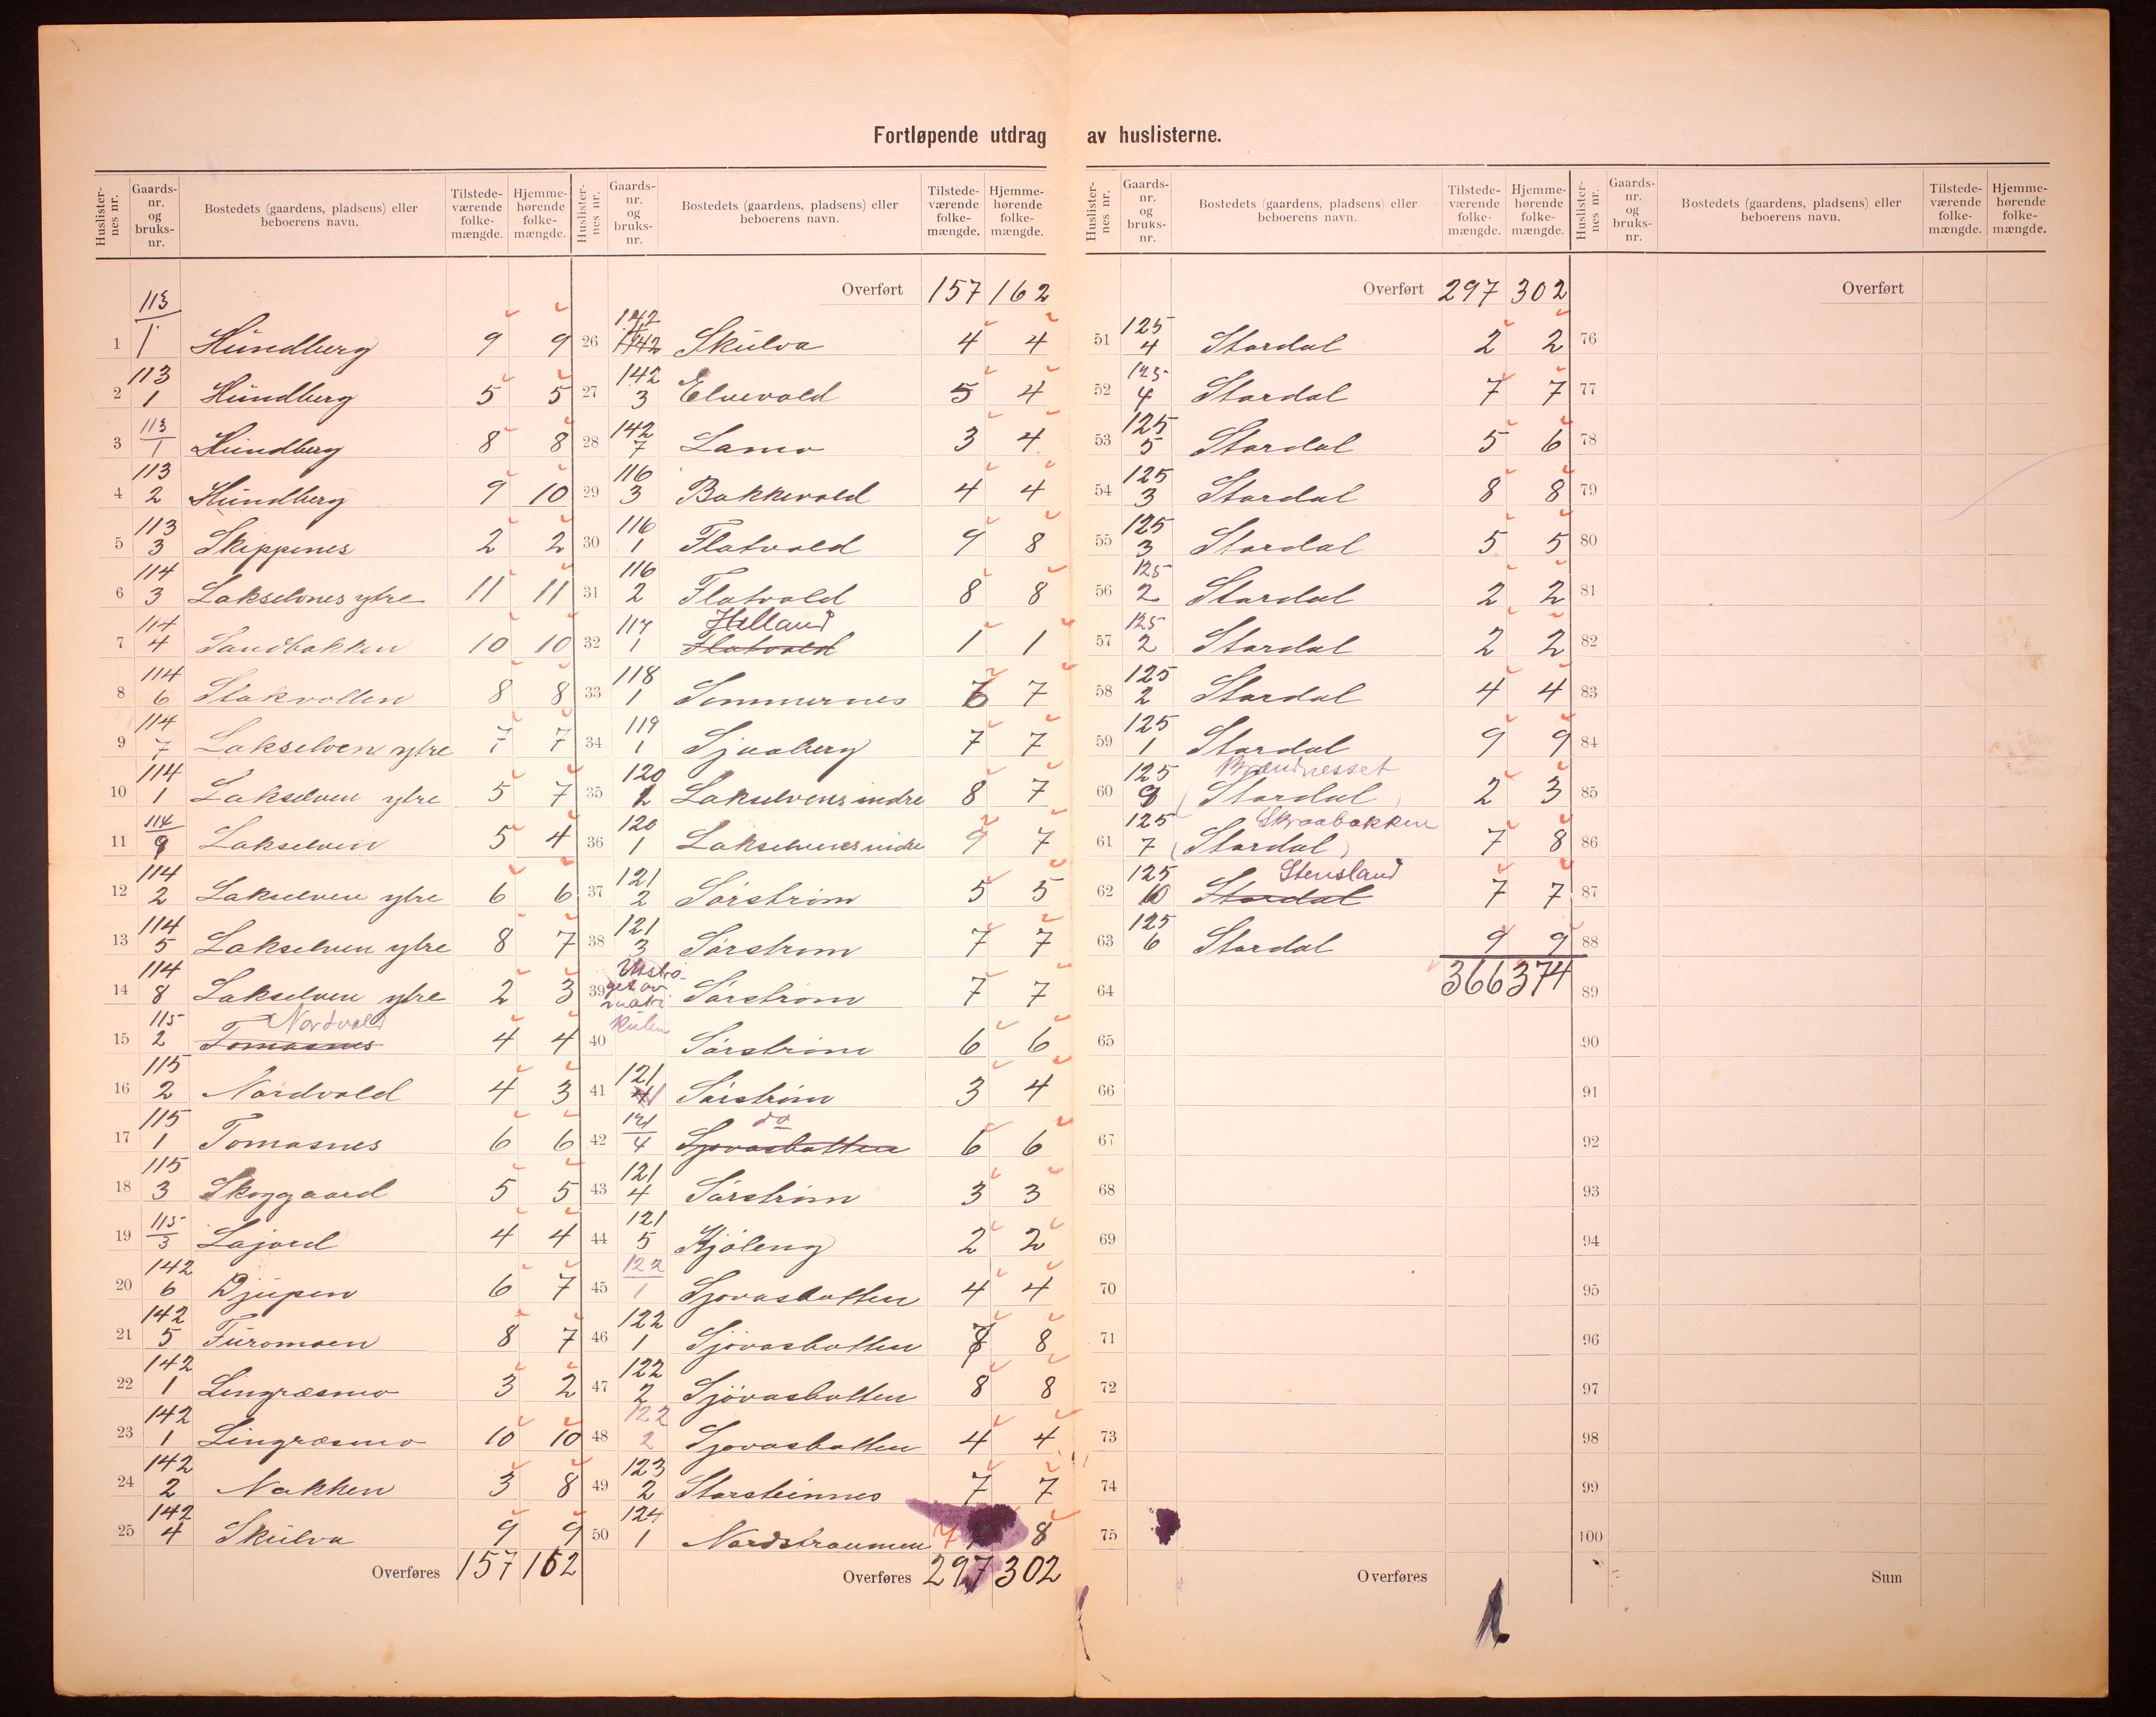 Fortløpende utdrag av huslisterne.
Huslisternes nr. Gaards-nr. og bruks-nr. Bostedets (gaardens, pladsens) eller beboerens navn. Tilstede-værende folke-mængde. Hjemme-hørende folke-mængde.
1 113/1 Hundberg 9 9
2 113/1 Hundberg 5 5
3 113/1 Hundberg 8 8
4 113/2 Hundberg 9 10
5 113/3 Skippenes 2 2
6 114/3 Lakselvnes ytre 11 11
7 114/4 Sandbakken 10 10
8 114/6 Stakvollen 8 8
9 114/7 Lakselven ytre 7 7
10 114/1 Lakselven ytre 5 7
11 114/9 Lakselven 5 4
12 114/2 Lakselven ytre 6 6
13 114/5 Lakselven ytre 8 7
14 114/8 Lakselven ytre 2 3
15 115/2 Tomasnes Nordvold 4 4
16 115/2 Nordvold 4 3
17 115/1 Tomasnes 6 6
18 115/3 Skoggaard 5 5
19 115/3 Lajord 4 4
20 142/6 Djupen 6 7
21 142/5 Furomoen 8 7
22 142/1 Lingræsmo 3 2
23 142/1 Lingræsmo 10 10
24 142/2 Nakken 3 8
25 142/4 Skulva 9 9
Overføres 157 162
Huslisternes nr. Gaards-nr. og bruks-nr. Bostedets (gaardens, pladsens) eller beboerens navn. Tilstede-værende folke-mængde. Hjemme-hørende folke-mængde.
Overført 157 162
26 142/4 Skulva 4 4
27 142/3 Elvevold 5 4
28 142/7 Lamo 3 4
29 116/3 Bakkevold 4 4
30 116/1 Flatvold 9 8
31 116/2 Flatvold 8 8
32 117/1 Flatvold Helland 1 1
33 118/1 Sommernes 6 7
34 119/1 Sjuaberg 7 7
35 120/2 Lakselvens indre 8 7
36 120/1 Lakselvens indre 9 7
37 121/2 Sørstrøm 5 5
38 121/3 Sørstrøm 7 7
39 Utstrøget av matrikulen Sørstrøm 7 7
40 Sørstrøm 6 6
41 121/4 Sørstrøm 3 4
42 121/4 Sjovasbotten do 6 6
43 121/4 Sørstrøm 3 3
44 121/5 Kjøleng 2 2
45 122/1 Sjovasbotten 4 4
46 122/1 Sjövasbotten 7 8
47 122/2 Sjövasbotten 8 8
48 122/2 Sjovasbotten 4 4
49 123/2 Storsteinnes 7 7
50 124/1 Nordstraumen 7 8
Overføres 297 302
Huslisternes nr. Gaards-nr. og bruks-nr. Bostedets (gaardens, pladsens) eller beboerens navn. Tilstede-værende folke-mængde. Hjemme-hørende folke-mængde.
Overført 297 302
51 125/4 Stordal 2 2
52 125/4 Stordal 7 7
53 125/5 Stordal 5 6
54 125/3 Stordal 8 8
55 125/3 Stordal 5 5
56 125/2 Stordal 2 2
57 125/2 Stordal 2 2
58 125/2 Stordal 4 4
59 125/1 Stordal 9 9
60 125/9 (Stordal) Brændnesset 2 3
61 125/7 (Stordal) Skraabakken 7 8
62 125/10 Stordal Stensland 7 7
63 125/6 Stordal 9 9
64 366 374
65
66
67
68
69
70
71
72
73
74
75
Overføres
Huslisternes nr. Gaards-nr. og bruks-nr. Bostedets (gaardens, pladsens) eller beboerens navn. Tilstede-værende folke-mængde. Hjemme-hørende folke-mængde.
Overført
76
77
78
79
80
81
82
83
84
85
86
87
88
89
90
91
92
93
94
95
96
97
98
99
100
Sum